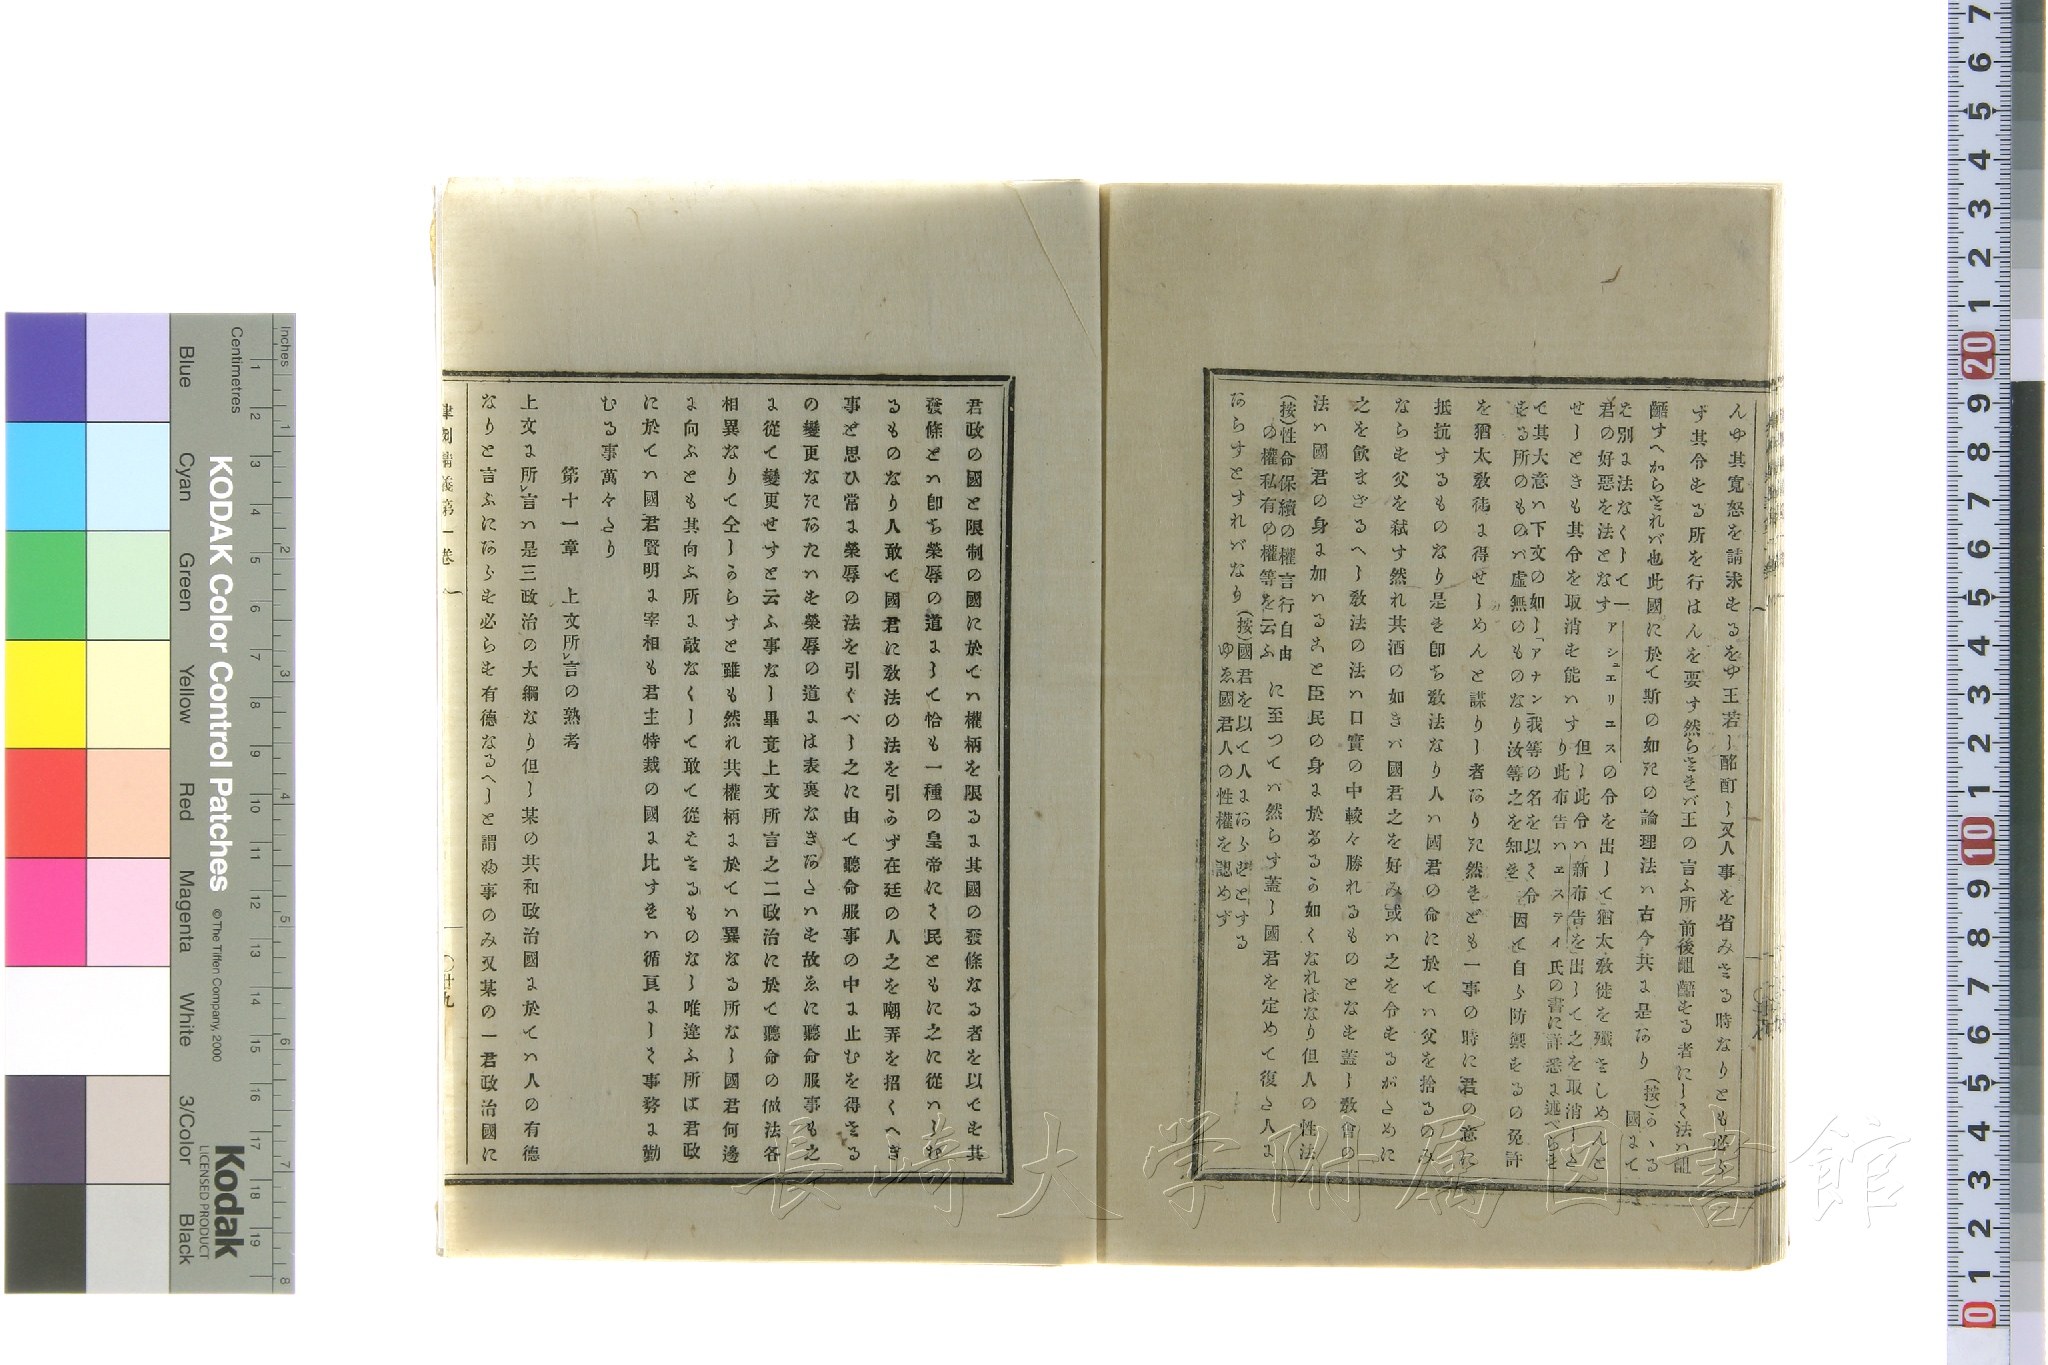 んや其寛恕を請求せるをや王若し酩酊し又人事を省みさる時なりとも必ら
ず其令せる所を行はんを要す然らされバ王の言ふ所前後齟齬せる者にして法ハ齟
齬すへからされバ也此國に於て斯の如きの論理法ハ古今共に是あり(按)かゝる
國にて
を別に法なくして一
君の好惡を法となす
アシュエリュスの令を出して猶太敎徒を殲さしめんと
せしときも其令を取消を能ハす
但し此令ハ新布告を出して之を取消した
り此布告ハエスティ氏の書に詳悉に述べら
て其大意ハ下文の如し「アナン」我等の名を以て令
せる所のものハ虛無のものなり汝等之を知を」
因て自ら防禦せるの免許
を猶太敎徒に得せしめんと謀りし者ありき然れども一事の時に君の意に
抵抗するものなり是を卽ち敎法なり人ハ國君の命に於てハ父を捨るのみ
ならを父を弑す然れ共酒の如きハ國君之を好み或ハ之を令せるがために
之を飮まざるへし敎法の法ハ口實の中較々勝れるものとなを蓋し敎會の
法ハ國君の身に加ハること臣民の身に於るか如くなれはなり但人の性法
(按)性命保續の權言行自由
の權私有の權等を云ふ
に至つてハ然らす蓋し國君を定めて復た人に
あらすとすれバなり
(按)國君を以て人にあらをとする
ゆゑ國君人の性權を認めず
君政の國と限制の國に於てハ權柄を限るに其國の發條なる者を以てを其
發條とハ卽ち榮辱の道にして恰も一種の皇帝にて民ともに之に從ハしむ
るものなり人敢て國君に敎法の法を引かず在廷の人之を嘲弄を招くへき
事と思ひ常に榮辱の法を引くべし之に由て聽命服事の中に止むを得さる
の變更なきあたハを榮辱の道には表裏なきあたハを故ゑに聽命服事も之
に從て變更せすと云ふ事なし畢竟上文所言之二政治に於て聽命の倣法各
相異なりて仝しからすと雖も然れ共權柄に於てハ異なる所なし國君何邊
に向ぶとも其向ふ所に敵なくして敢て從ささるものなし唯逢ふ所ば君政
に於てハ國君賢明に宰相も君主特裁の國に比すをハ循良にして事務に勤
むる事萬々たり
第十一章 上文所言の熟考
上文に所言ハ是三政治の大綱なり但し某の共和政治國に於てハ人の有德
なりと言ふにあらを必らを有德なるへしと謂ぬ事のみ又某の一君政治國に
律例精義第一卷
〇廿九
長崎大学附属図書館
KODAK Color Control Patches
© The Tiffen Company, 2000
Kodak
LICENSED PRODUCT
Inches
Centimetres
Blue
Cyan
Green
Yellow
Red
Magenta
White
3/Color
Black